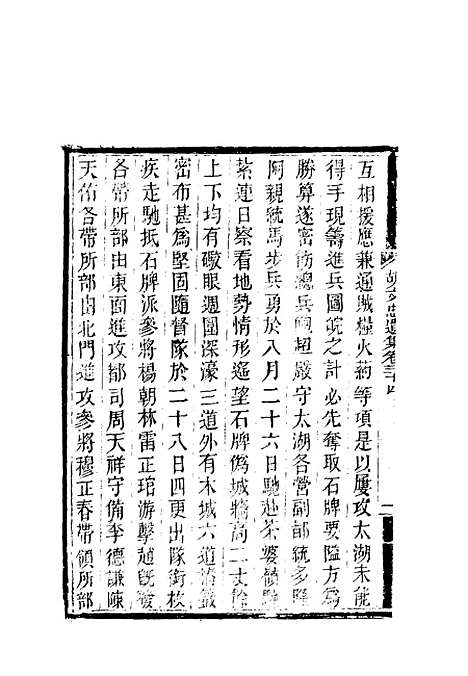 胡文忠公遺集卷三十四
互相援應兼通賊糧火葯等項是以屢攻太湖未能
得手現籌進兵圖皖之計必先奪取石牌要隘方爲
勝算遂密飭總兵鮑超嚴守太湖各營副都統多隆
阿親統馬步兵勇於八月二十六日馳赴茶婆嶺駐
紮連日察看地勢情形遙望石牌僞城牆高二丈餘
上下均有礮眼週圍深濠三道外有木城六道
密布甚爲堅固隨督隊於二十八日四更出隊銜枚
疾走馳抵石牌派參將楊朝林雷正琯游擊趙旣發
各帶所部由東面進攻都司周天祥守備李德謙陳
天佑各帶所部由北門進攻參將穆正春帶領所部